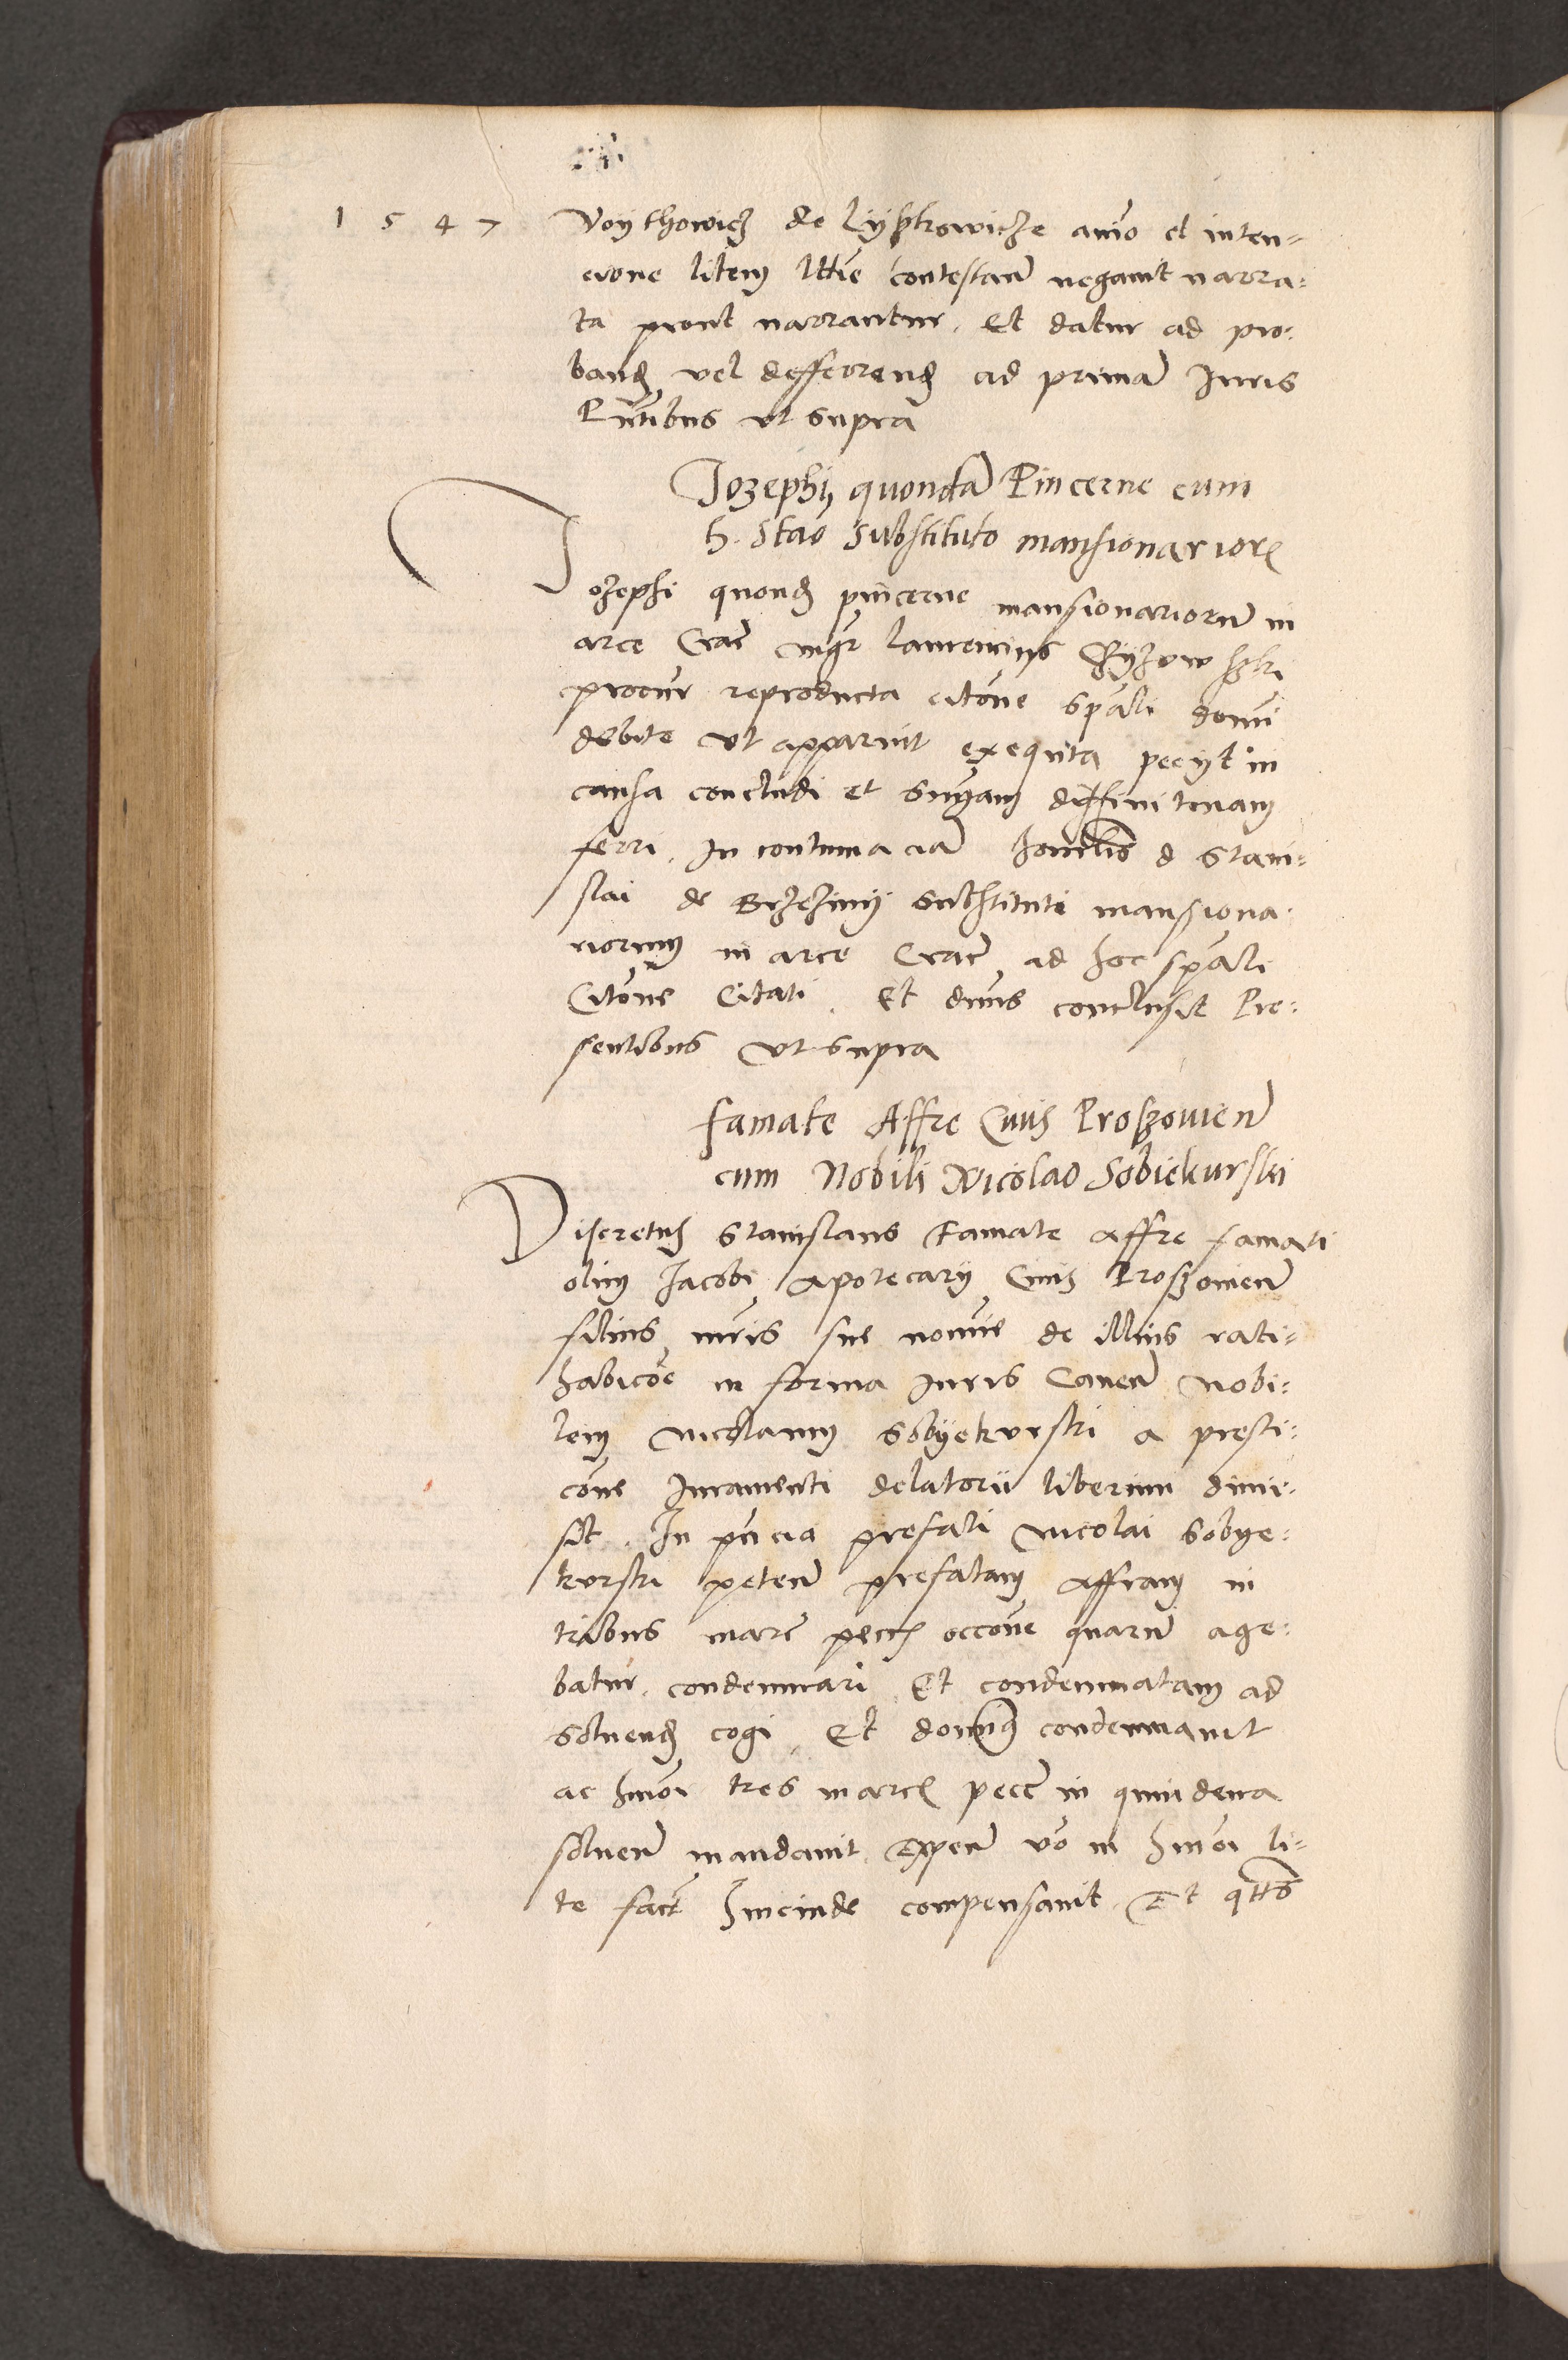 1547
Voythowicz de Lyszkowicze anio et inten-
cione litem lttie contestan negavit narra-
ta prout narrantur. Et datur ad pro-
band vel defferend ad primam Iuris
Pntibus ut supra
Jozephi quonda Pincerne cum
h. Stao substituto mansionarior
Jozephi quond pincerne mansionarioru in
arce Crac mgr Laurencius Ryzowszki
procur reproducta citone spali domi
debite ut apparuit exequta pecyt in
causa concludi et snyam diffinitivam
ferri. In contumacia honorabilis d Stani-
slai de Brzeziny substituti mansiona-
riorum in arce Crac ad hoc spali
Citone Citati. Et dnus conclusit Pre-
sentibus ut supra
famate Affre Civis Proszovien
cum Nobili Nicolao Sobiekurski
Discretus Stanislaus Famate Affre famati
olim Jacobi Apotecarii Civis Proszovien
filius mris sue nomie de illius rati-
habicoe in forma Iuris Caven Nobi-
lem Nicolaum Sobyekurski a presti-
cone Iuramenti delatorii liberum dimi-
sit. In pncia prefati Nicolai Sobye-
kurski peten prefatam Affram in
tribus marc pecc occone quaru age-
batur condemnari Et condemnatam ad
solvend cogi. Et dominus condemnavit
ac hmoi tres marc pecc in quindena
solven mandavit Expen vo in hmoi li-
te fact hincinde compensavit Et qtts